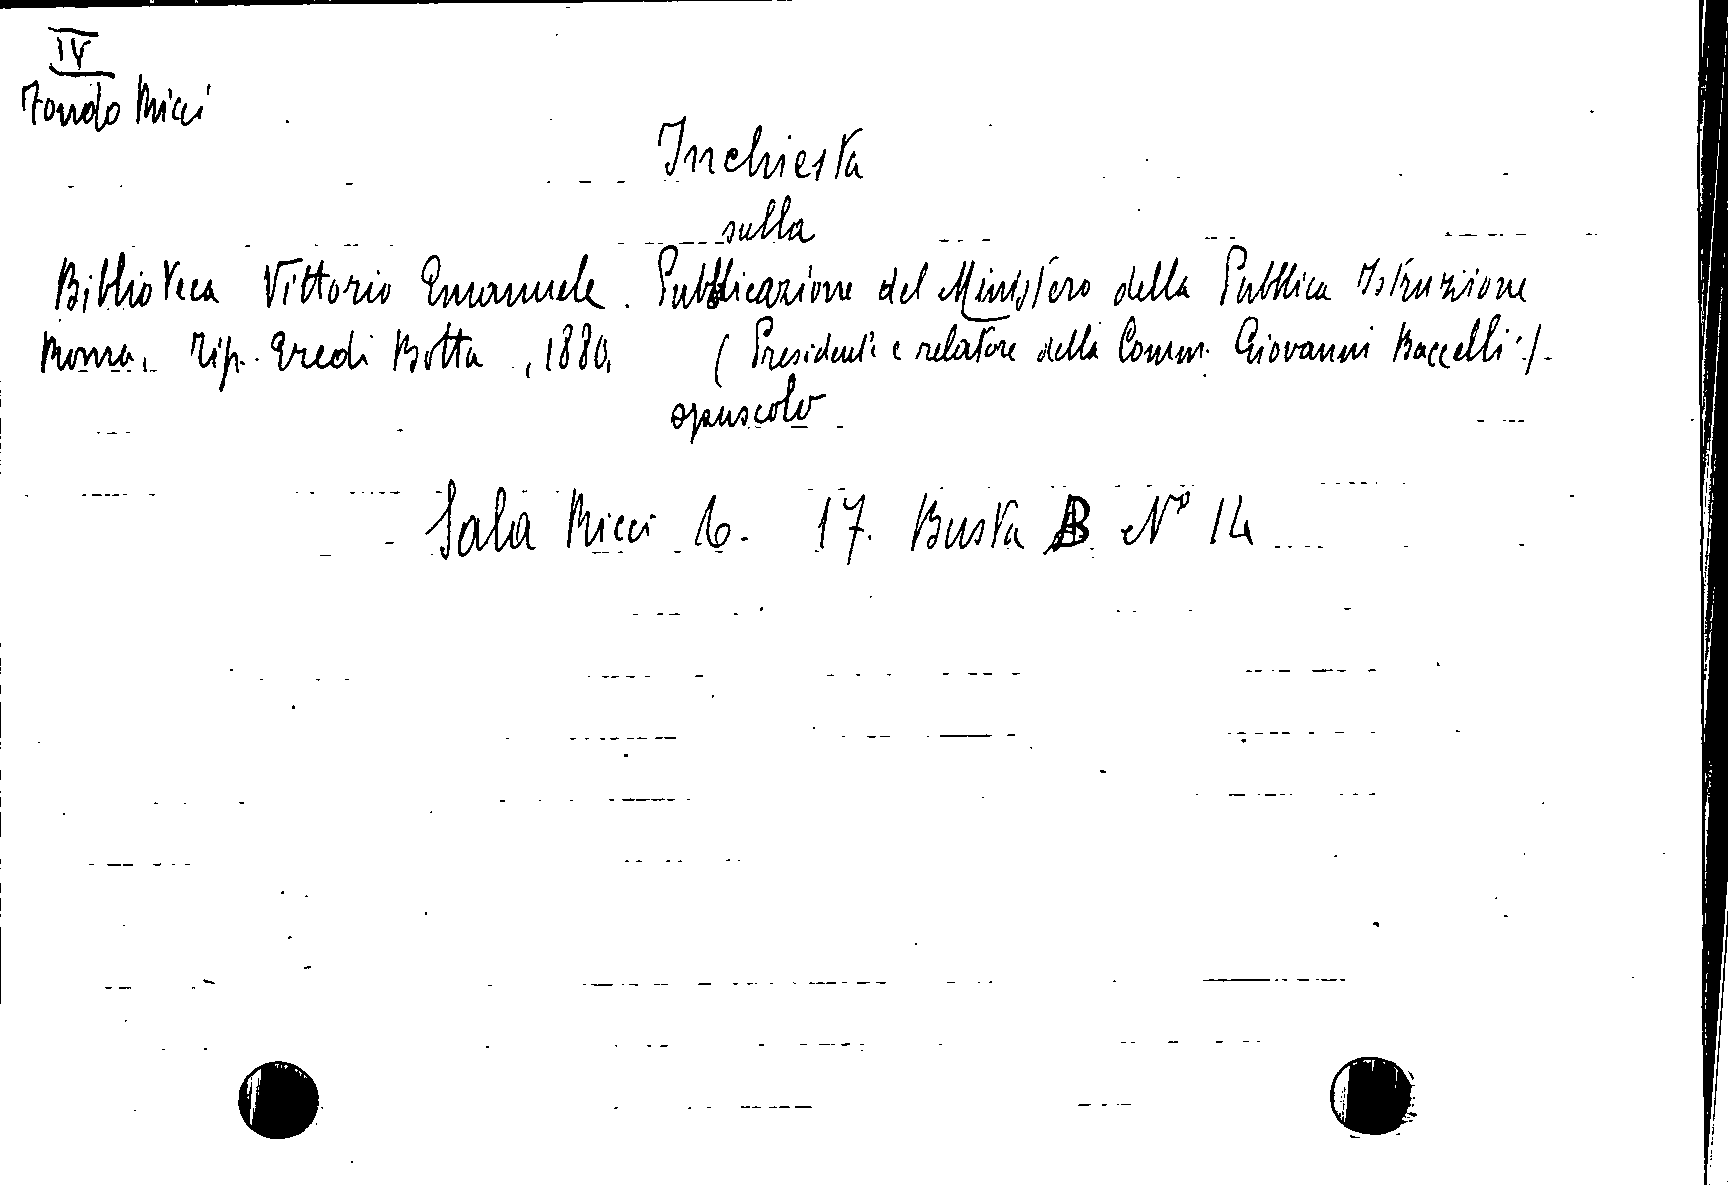 IV
Fondo Ricci
Inchiesta
sulla
Biblioteca Vittorio Emanuele. Pubblicazione del Ministero della Pubblica Istruzione
Roma, Tip. Eredi Botta, 1880. (Presidente e relatore della Comm. Giovanni Baccelli).
opuscolo
Sala Ricci 16. 17. Busta B N° 14